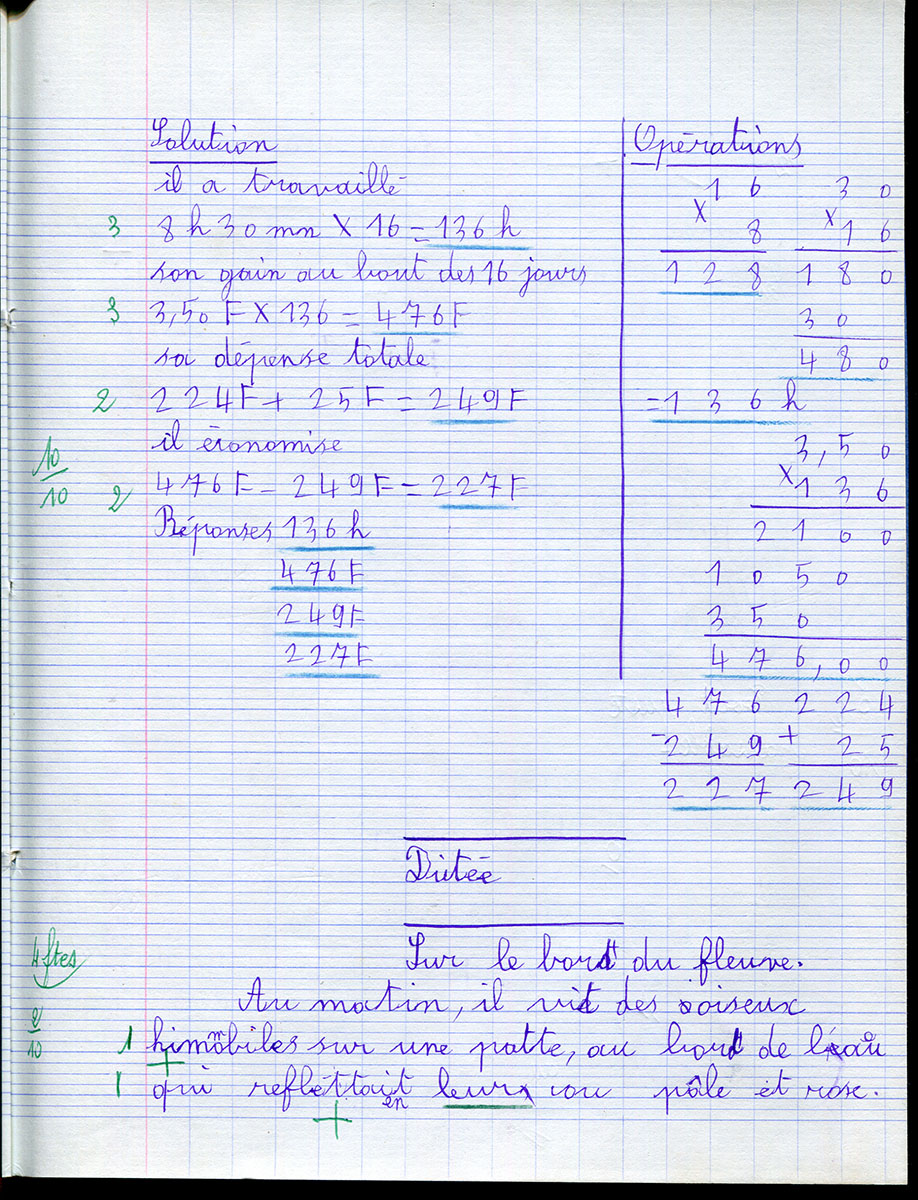 Solution
il a travaillé
3 8 h 30 mn X 16 = 136 h
son gain au bout des 16 jours
3 3,50 F X 136 = 476F
sa dépense totale
2 224F + 25F = 249F
il économise
10/10 2 476F - 249F = 227F
Réponses 136 h
476F
249F
227F
Opérations
1 6 3 0
X 8 X 1 6
1 2 8 1 8 0
3 0
4 8 0
= 1 3 6 h
3,5 0
X 1 3 6
2 1 0 0
1 0 5 0
3 5 0
4 7 6,0 0
4 7 6 2 2 4
- 2 4 9 + 2 5
2 2 7 2 4 9
Dictée
4 ftes Sur le bord du fleuve.
Au matin, il vit des oiseux
1 himmobiles sur une patte, au bord de l'eau
1 qui reflèttait en leurs cou pâle et rose.